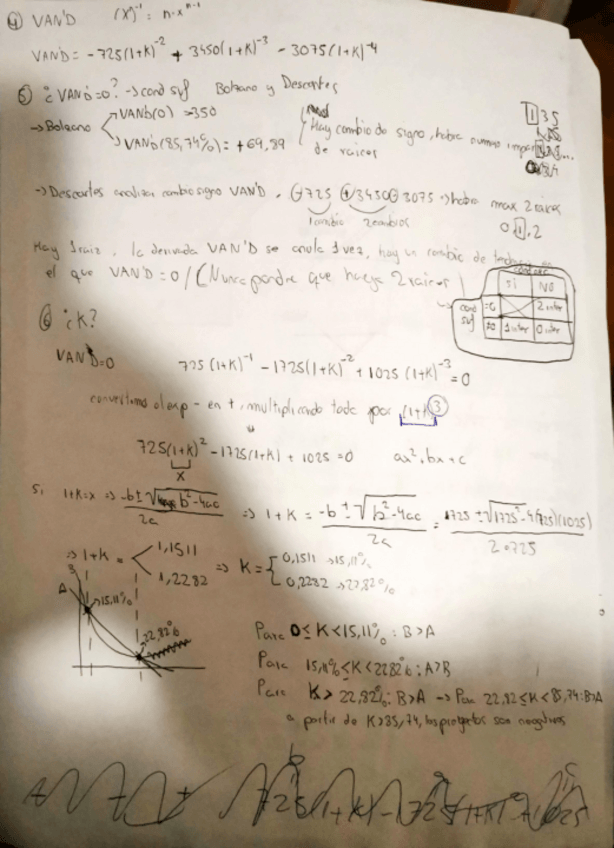 ④ VAN'D (X)⁻¹ = n·x^(n-1)
VAN'D = -725(1+K)⁻² + 3450(1+K)⁻³ - 3075(1+K)⁻⁴
⑤ ¿VAN'D=0? → cond suf Bolzano y Descartes
→ Bolzano
VAN'D(0) = -350
VAN'D(85,74%) = +69,89
Hay cambio de signo, habra numero impar
de raices
135
→ Descartes analizar cambio signo VAN'D. -725 +3450 -3075 → habra max 2 raices
1 cambio 2 cambios
0,1,2
Hay 1 raiz, la derivada VAN'D se anula 1 vez, hay un cambio de
el que VAN'D=0 / (Nunca pondre que haya 2 raices)
SI NO
cond suf
=0 2 inter
≠0 1 inter 0 inter
⑥ ¿K?
VAN D=0 725(1+K)⁻¹ - 1725(1+K)⁻² + 1025(1+K)⁻³ = 0
convertimos el exp - en +, multiplicando todo por (1+K)³
725(1+K)² - 1725(1+K) + 1025 = 0 ax²+bx+c
x
Si 1+K=x ⇒ (-b±√(b²-4ac))/2a ⇒ 1+K = (-b±√(b²-4ac))/2a = (1725±√(1725²-4(725)(1025)))/(2·725)
⇒ 1+K = 1,1511 1,2282 ⇒ K = { 0,1511 → 15,11% 0,2282 → 22,82%
B
A
15,11%
22,82%
Para 0≤K<15,11%: B>A
Para 15,11%≤K<22,82%: A>B
Para K>22,82%: B>A → Para 22,82≤K<85,74: B>A
a partir de K>85,74, los proyectos son negativos